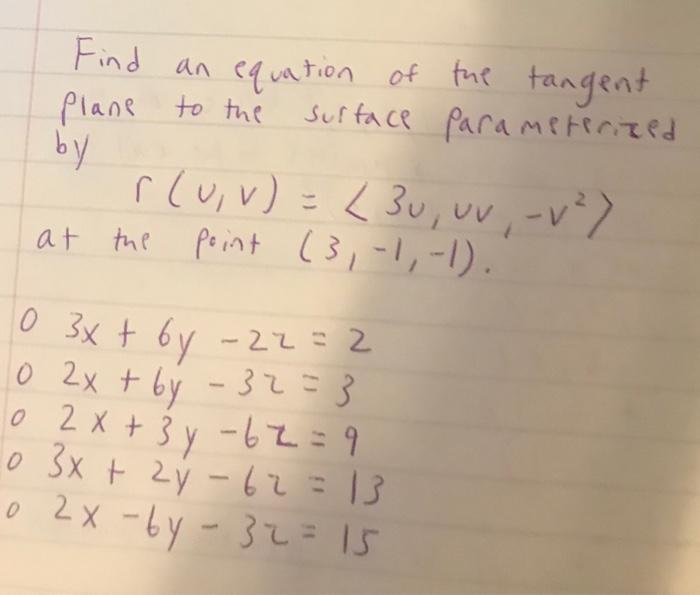 Find an equation of the tangent
plane to the surface parameterized
by
r(u,v) = <3u, uv, -v²>
at the point (3,-1,-1).
O 3x + 6y - 2z = 2
O 2x + 6y - 3z = 3
O 2x + 3y - 6z = 9
O 3x + 2y - 6z = 13
O 2x - 6y - 3z = 15